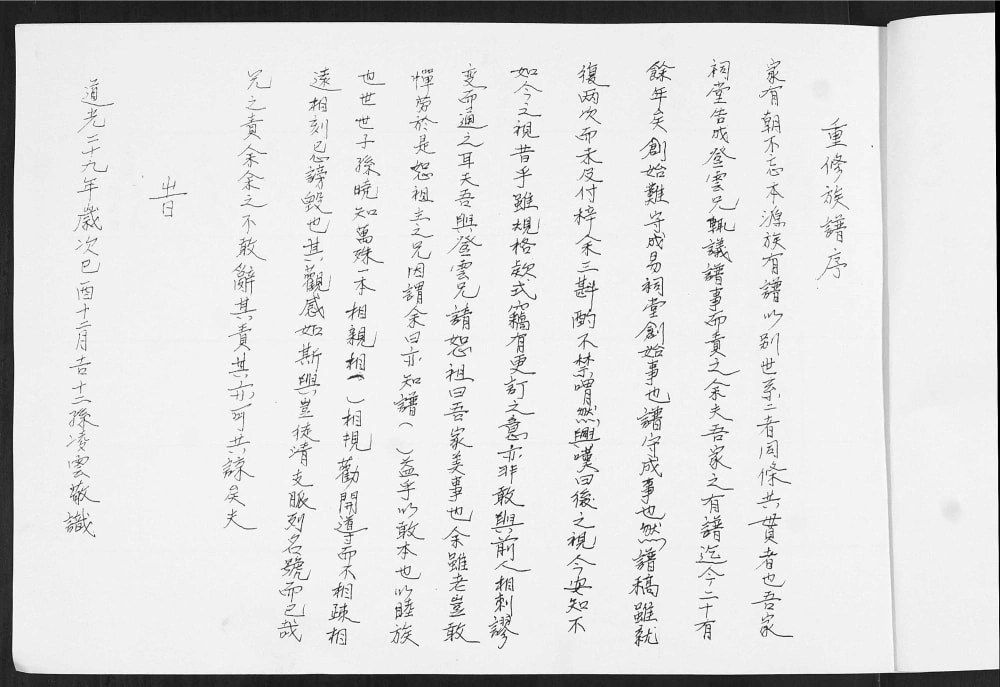 重修族譜序
家有朝不忘本源族有譜以別世系二者同條共貫者也吾家
祠堂告成登雲兄輒議譜事而責之余夫吾家之有譜迄今二十有
餘年矣創始難守成易祠堂創始事也譜守成事也然譜稿雖就
復两次而未及付梓余三斟酌不禁喟然興嘆曰後之視今安知不
如今之視昔乎雖規格欵式竊有更訂之意亦非敢與前人相刺謬
变而通之耳夫吾與登雲兄請恕祖曰吾家美事也余雖老豈敢
憚劳於是恕祖主之兄因謂余曰亦知譜()益乎以敢本也以睦族
也世世子孫曉知萬殊一本相親相()相規勸開導而不相疎相
遠相刻忌謗毁也其觀感如斯與豈徒清支脈列名號而已哉
兄之責余余之不敢辭其責其亦可共諒矣夫
岀
道光二十九年歲次己酉十二月吉十二孫凌雲敬識